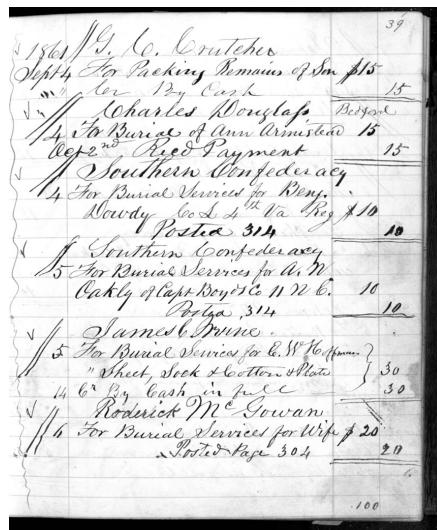 39
1861 G. C. Crutcher
Sept 4 For Packing Remains of Son $15
" " Cr By Cash 15
Charles Douglass Bedford
4 For Burial of Ann Armistead 15
Oct 2nd Recd Payment 15
Southern Confederacy
4 For Burial Services for Benj.
Dowdy Co I 4th Va Reg $10
Posted 314 10
Southern Confederacy
5 For Burial Services for A. N
Oakly of Capt Boyds Co 11 N C. 10
Posted 314 10
James C Irvine
5 For Burial Services for E. W. Hoffman
" Sheet, Sock & Cotton & Plate 30
14 Cr By Cash in full 30
Roderick McGowan
6 For Burial Services for Wife $20
Posted Page 304 20
100